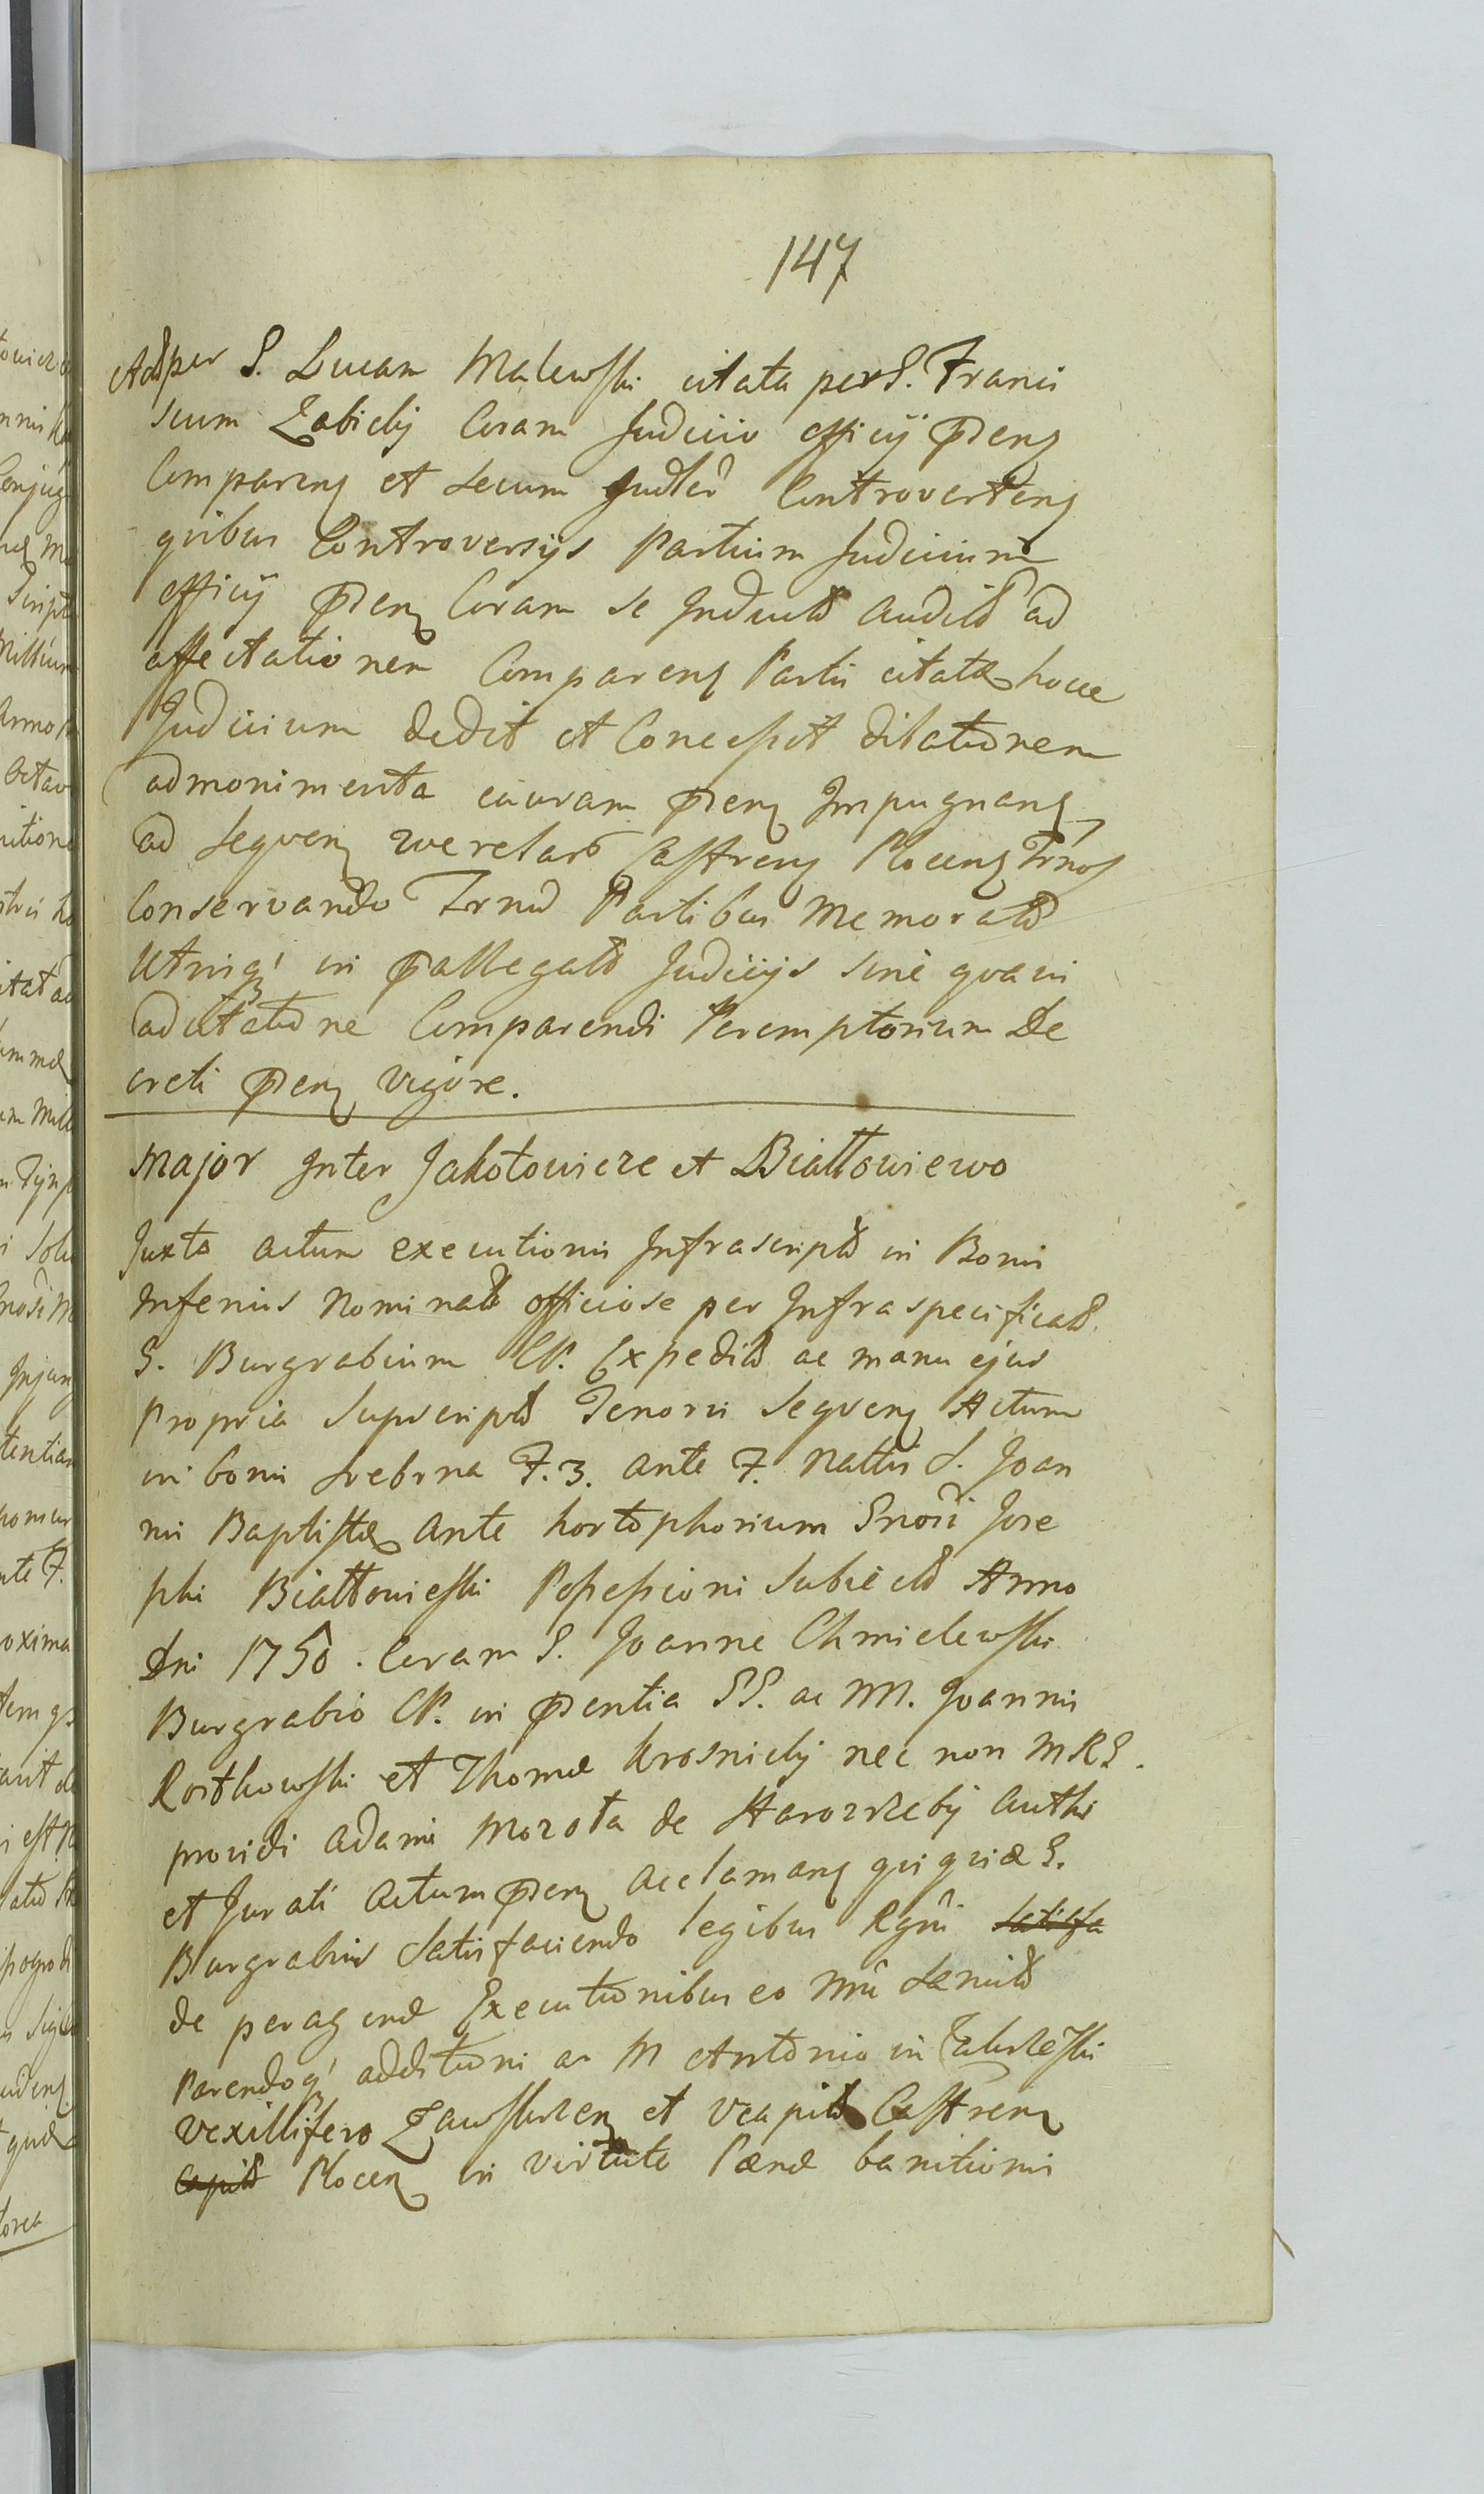 147
Actis per G. Lucam Malewski citata per G. Franci
scum Zabickij Coram Judicio officij praesenq
Comparenq et secum Judler Controvertenq
quibus Controversijs Partium Judicium
officij praesenq Coram se Inductis auditis ad
affectationem Comparenq Partis citatæ hocce
Judicium dedit et Concessit dilationem
ad monimenta curam praesenq Impugnanq
ad sequenq querelarum Castrenq Plocenq Trnos
Conservando Trno Partibus memoratis
Utrisq in praallegatis Judicijs sine quavis
adcitatione Comparendi Peremptorium De
creti praesenq vigore.
Major Inter Jakotowicze et Białłowiewo
Juxta actum executionis Infrascriptis in Bonis
Inferius Nominatis officiose per Infra specificatis
G. Burgrabium CP. Expeditis ac manu ejus
propria Supscriptis Tenoris Sequenq Actum
in bonis Srebrna F. 3. ante F. Nattis S. Joan
nis Baptistæ ante hortophorium Gnosi Jose
phi Białłowieski Possessioni Subiectis Anno
Dni 1750. Coram G. Joanne Chmielewski
Burgrabio CP. in praesentia GG. ac MM. Joannis
Rostkowski et Thomæ Krosnickij nec non MRG.
providi Adami Mozota de Starozreby Authi
et Jurati actum praesenq acclamanq qui quidæ G.
Burgrabius Satisfaciendo legibus Rgni Satisfa
de peragendæ Executionibus eo mn sancitis
Parendoq additioni ac M Antonio in Zakrzeski
Vexillifero Zawskrzen et Vcapit Castrenq
Capit Plocenq in virtute Pænæ banitionis